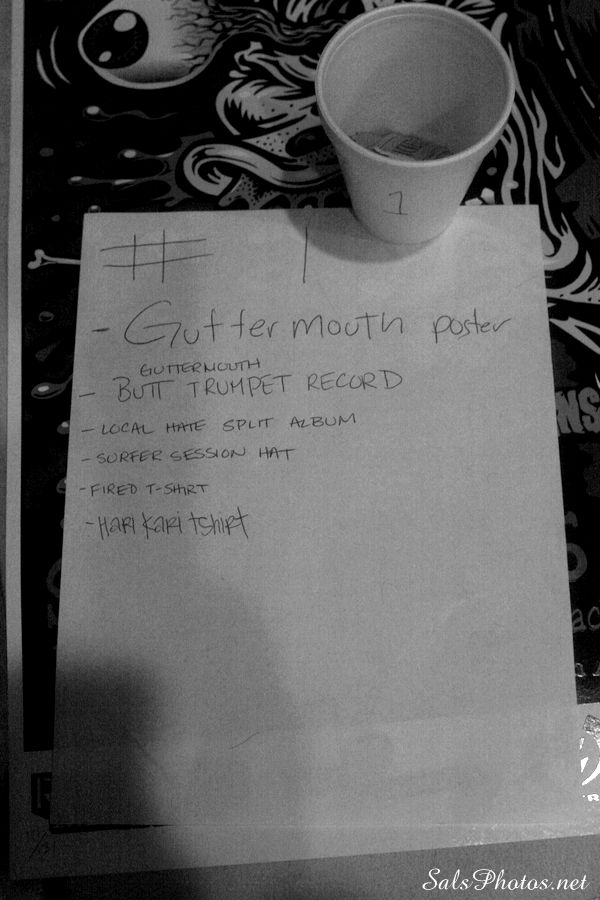 1
# 1
- Guttermouth poster
GUTTERMOUTH
- BUTT TRUMPET RECORD
- LOCAL HATE SPLIT ALBUM
- SURFER SESSION HAT
- FIRED T-SHIRT
- HARI KARI tshirt
NS
SalsPhotos.net